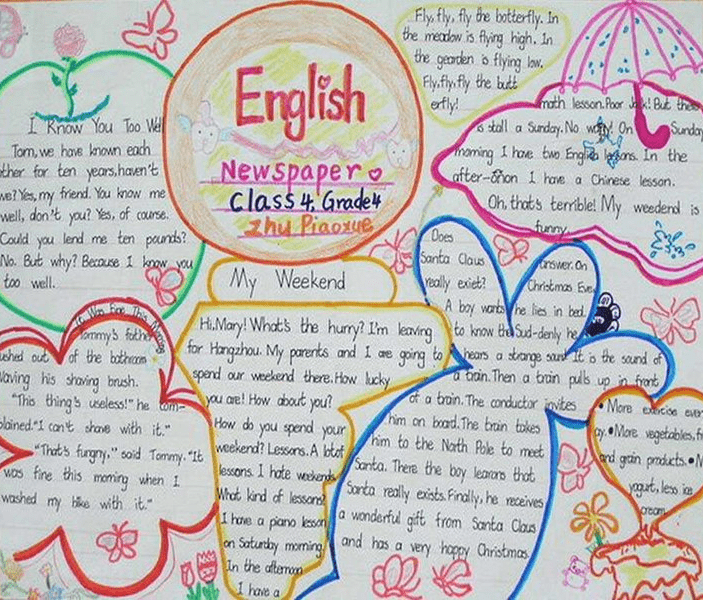 English
Newspaper
Class 4. Grade4
Zhu Piaoxue
I Know You Too Well
Tom, we have known each
other for ten years, haven't
we? Yes, my friend. You know me
well, don't you? Yes, of course.
Could you lend me ten pounds?
No. But why? Because I know you
too well.
It Was Fine This Morning
Tommy's father
ushed out of the bathroom
Waving his shaving brush.
"This thing's useless!" he com-
plained. "I can't shave with it."
"That's fungny," said Tommy. "It
was fine this morning when I
washed my bike with it."
My Weekend
Hi, Mary! What's the hurry? I'm leaving
for Hangzhou. My parents and I are going to
spend our weekend there. How lucky
you are! How about you?
How do you spend your
weekend? Lessons. A lotof
lessons. I hate weekends
What kind of lessons?
I have a piano lesson
on Saturday morning.
In the afternoon
I have a
math lesson. Poor Jack! But there
is stall a Sunday. No worry! On Sunday
morning I have two English lessons. In the
after-noon I have a Chinese lesson.
Oh, that's terrible! My weedend is
funny.
Fly, fly, fly the botterfly. In
the meadow is flying high. In
the gearden is flying low.
Fly, fly, fly the butt
erfly!
Does
Santa Claus
really exiet?
A boy wants
to know the
answer. On
Christmas Eve,
he lies in bed.
Sud-denly he
hears a strange sound. It is the sound of
a train. Then a train pulls up in front
of a train. The conductor invites
him on board. The train takes
him to the North Pole to meet
Santa. There the boy learns that
Santa really exists. Finally, he receives
a wonderful gift from Santa Claus
and has a very happy Christmas.
• More exercise ever
ay. • More vegetables, fr
and grain products. • M
yogurt, less ice
cream